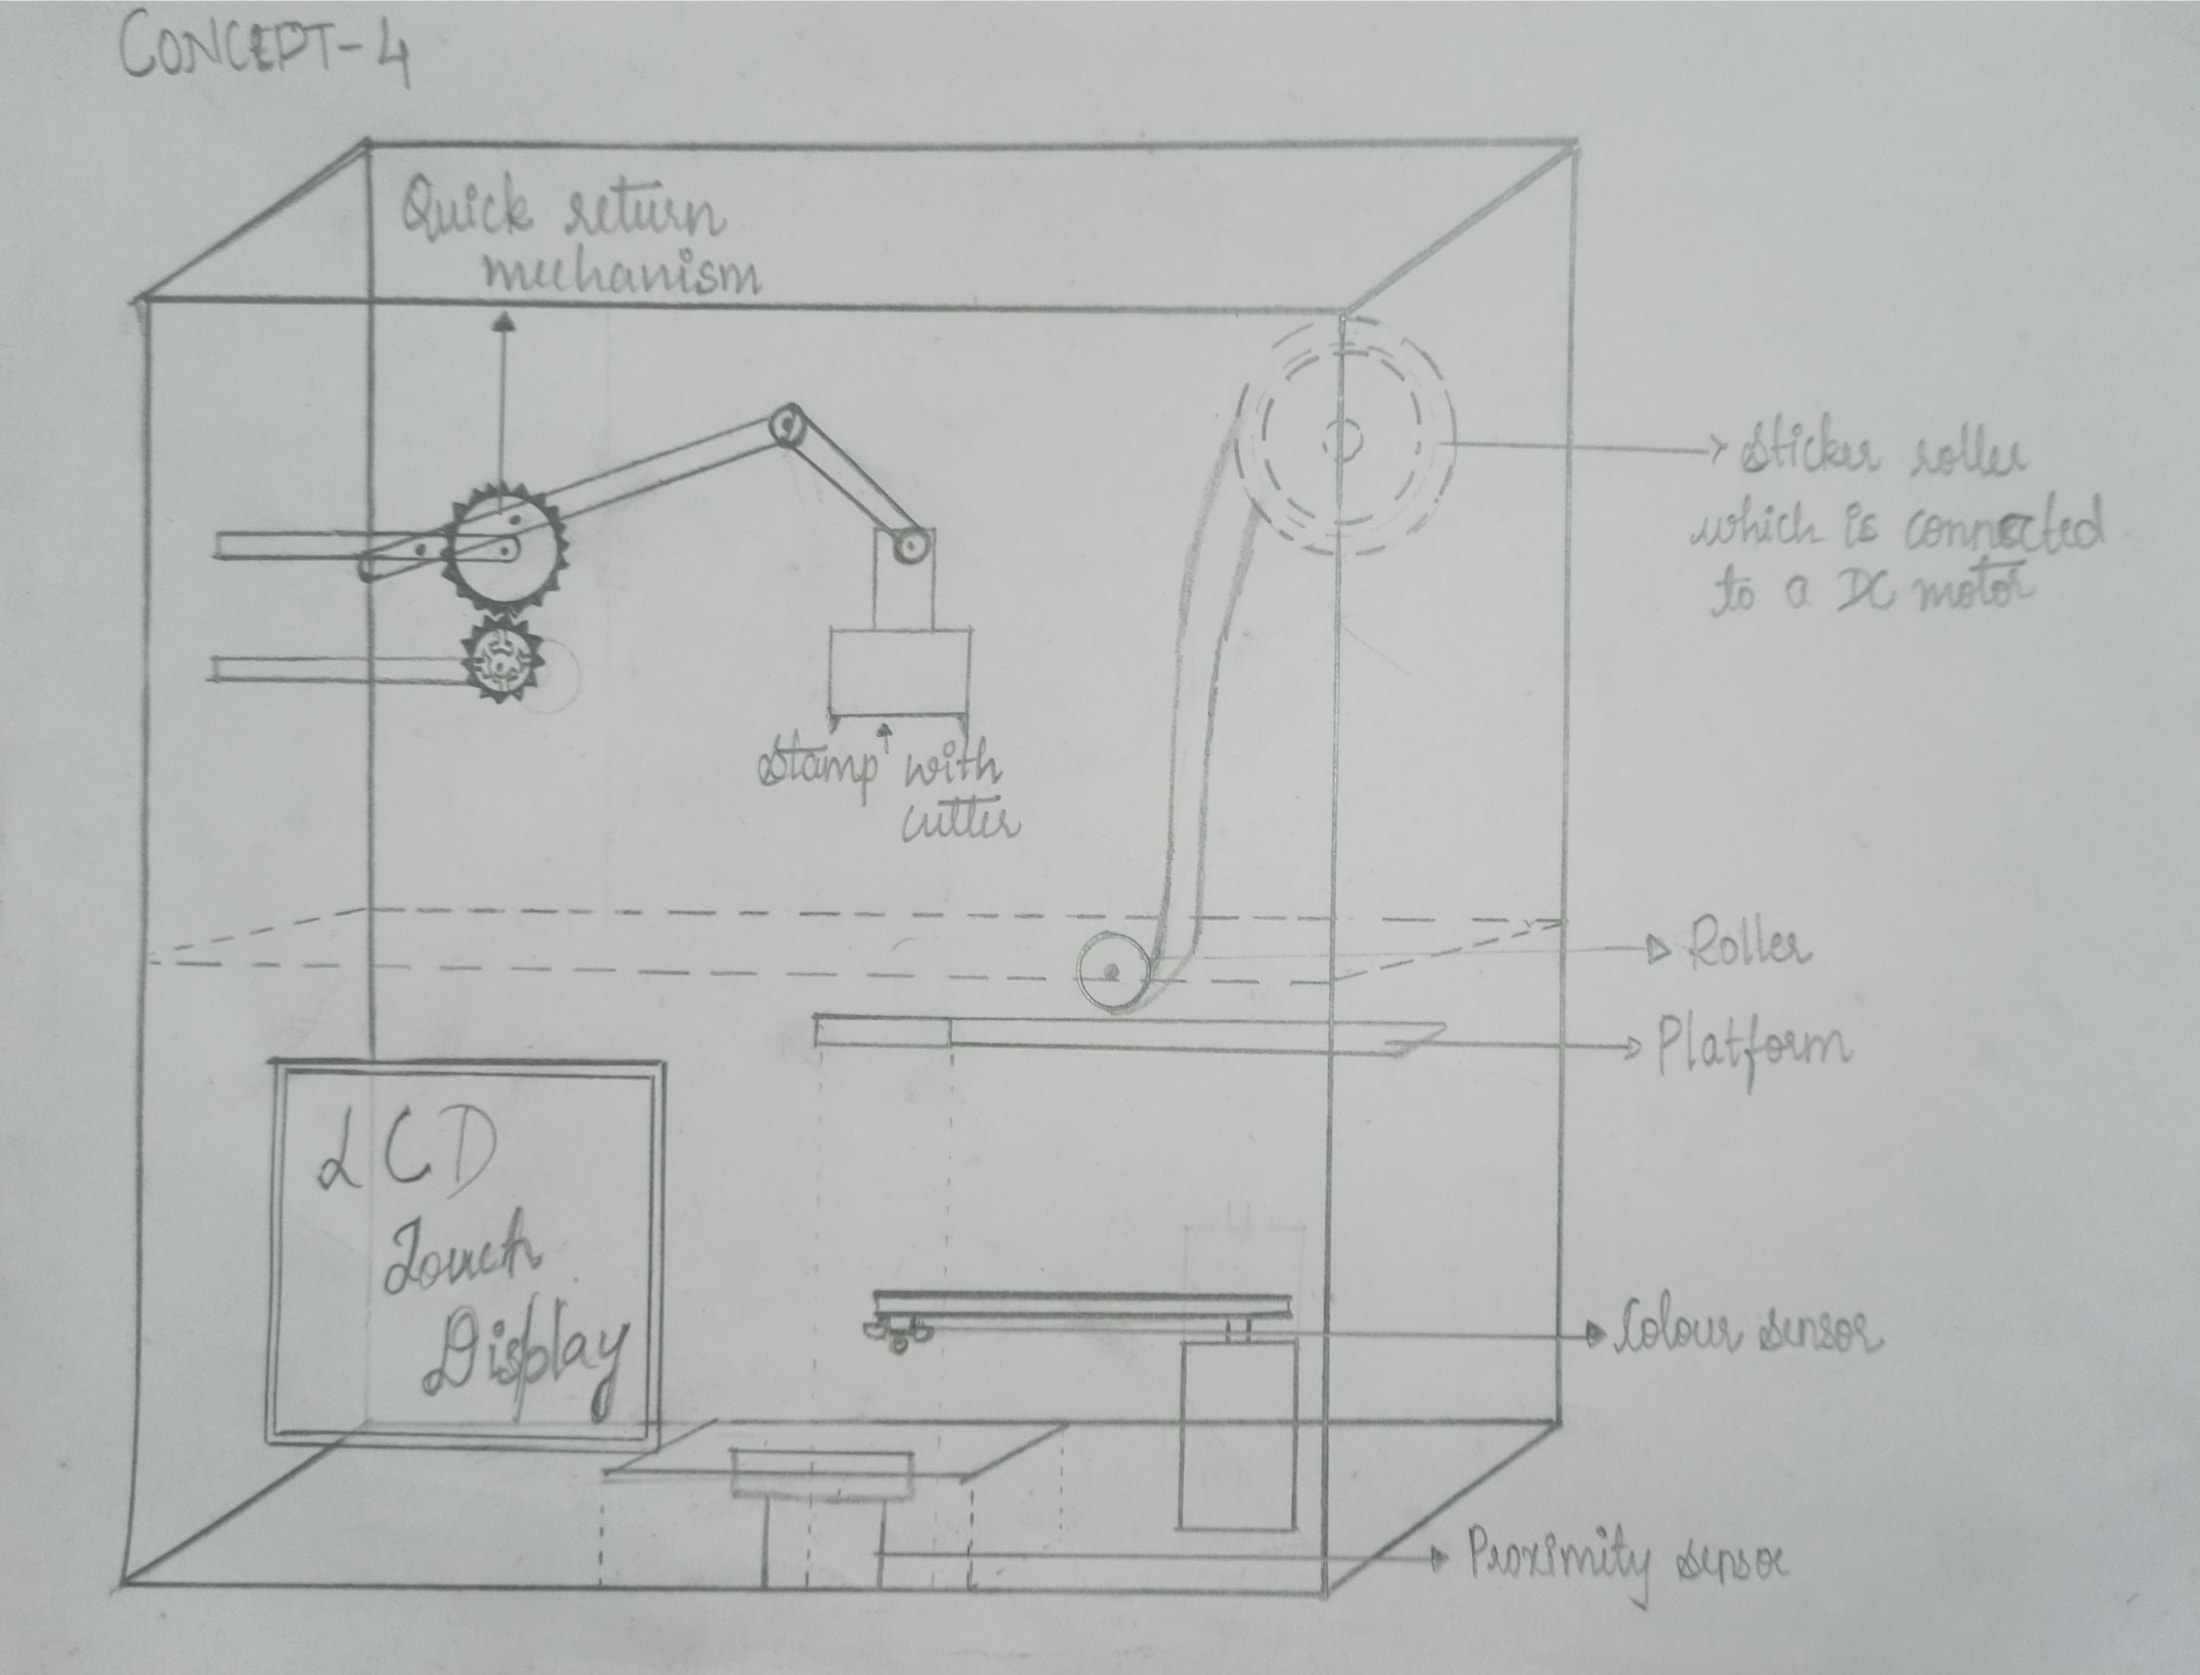 CONCEPT-4
Quick return
mechanism
Sticker roller
which is connected
to a DC motor
Stamp with
cutter
Roller
Platform
LCD
Touch
Display
Colour sensor
Proximity sensor